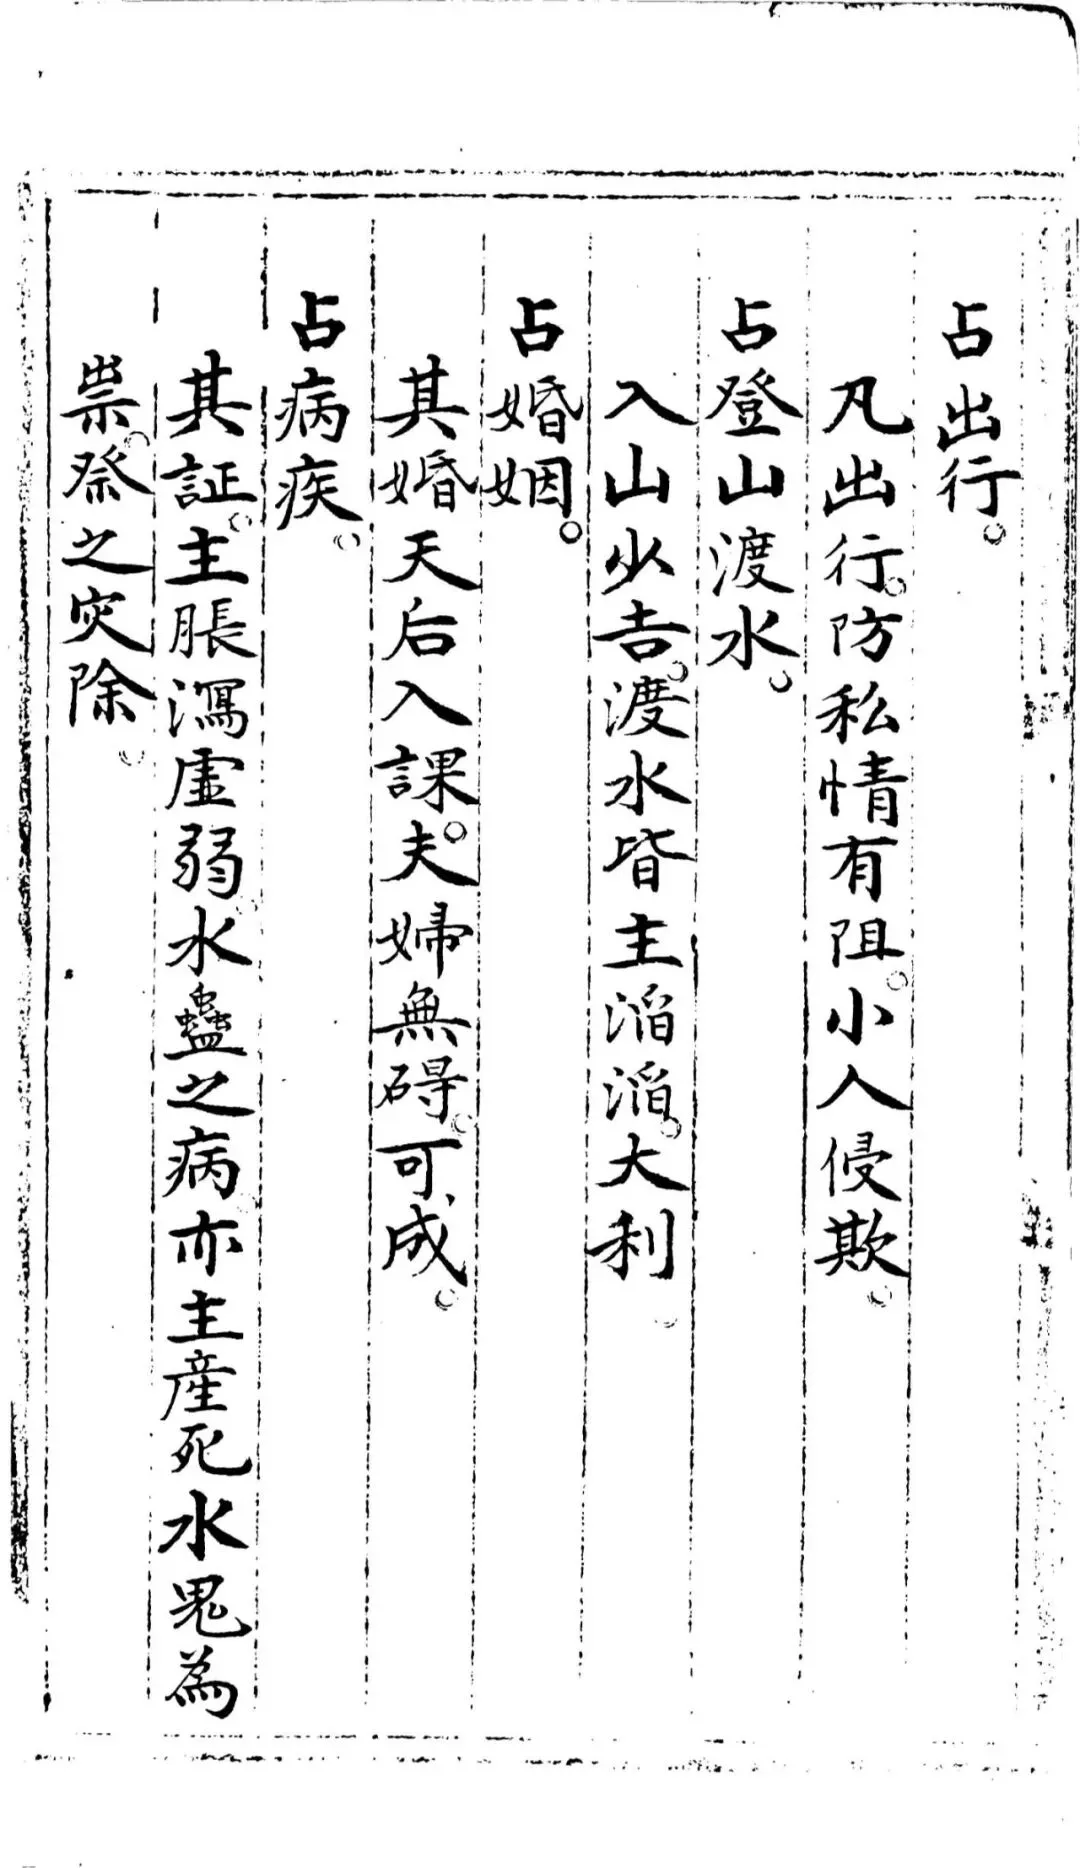 占出行。
凡出行。防私情有阻。小人侵欺。
占登山渡水。
入山必吉。渡水皆主滔滔。大利。
占婚姻。
其婚天后入課。夫婦無碍。可成。
占病疾。
其証。主脹瀉虛弱。水蠱之病。亦主産死水鬼為
祟。祭之灾除。